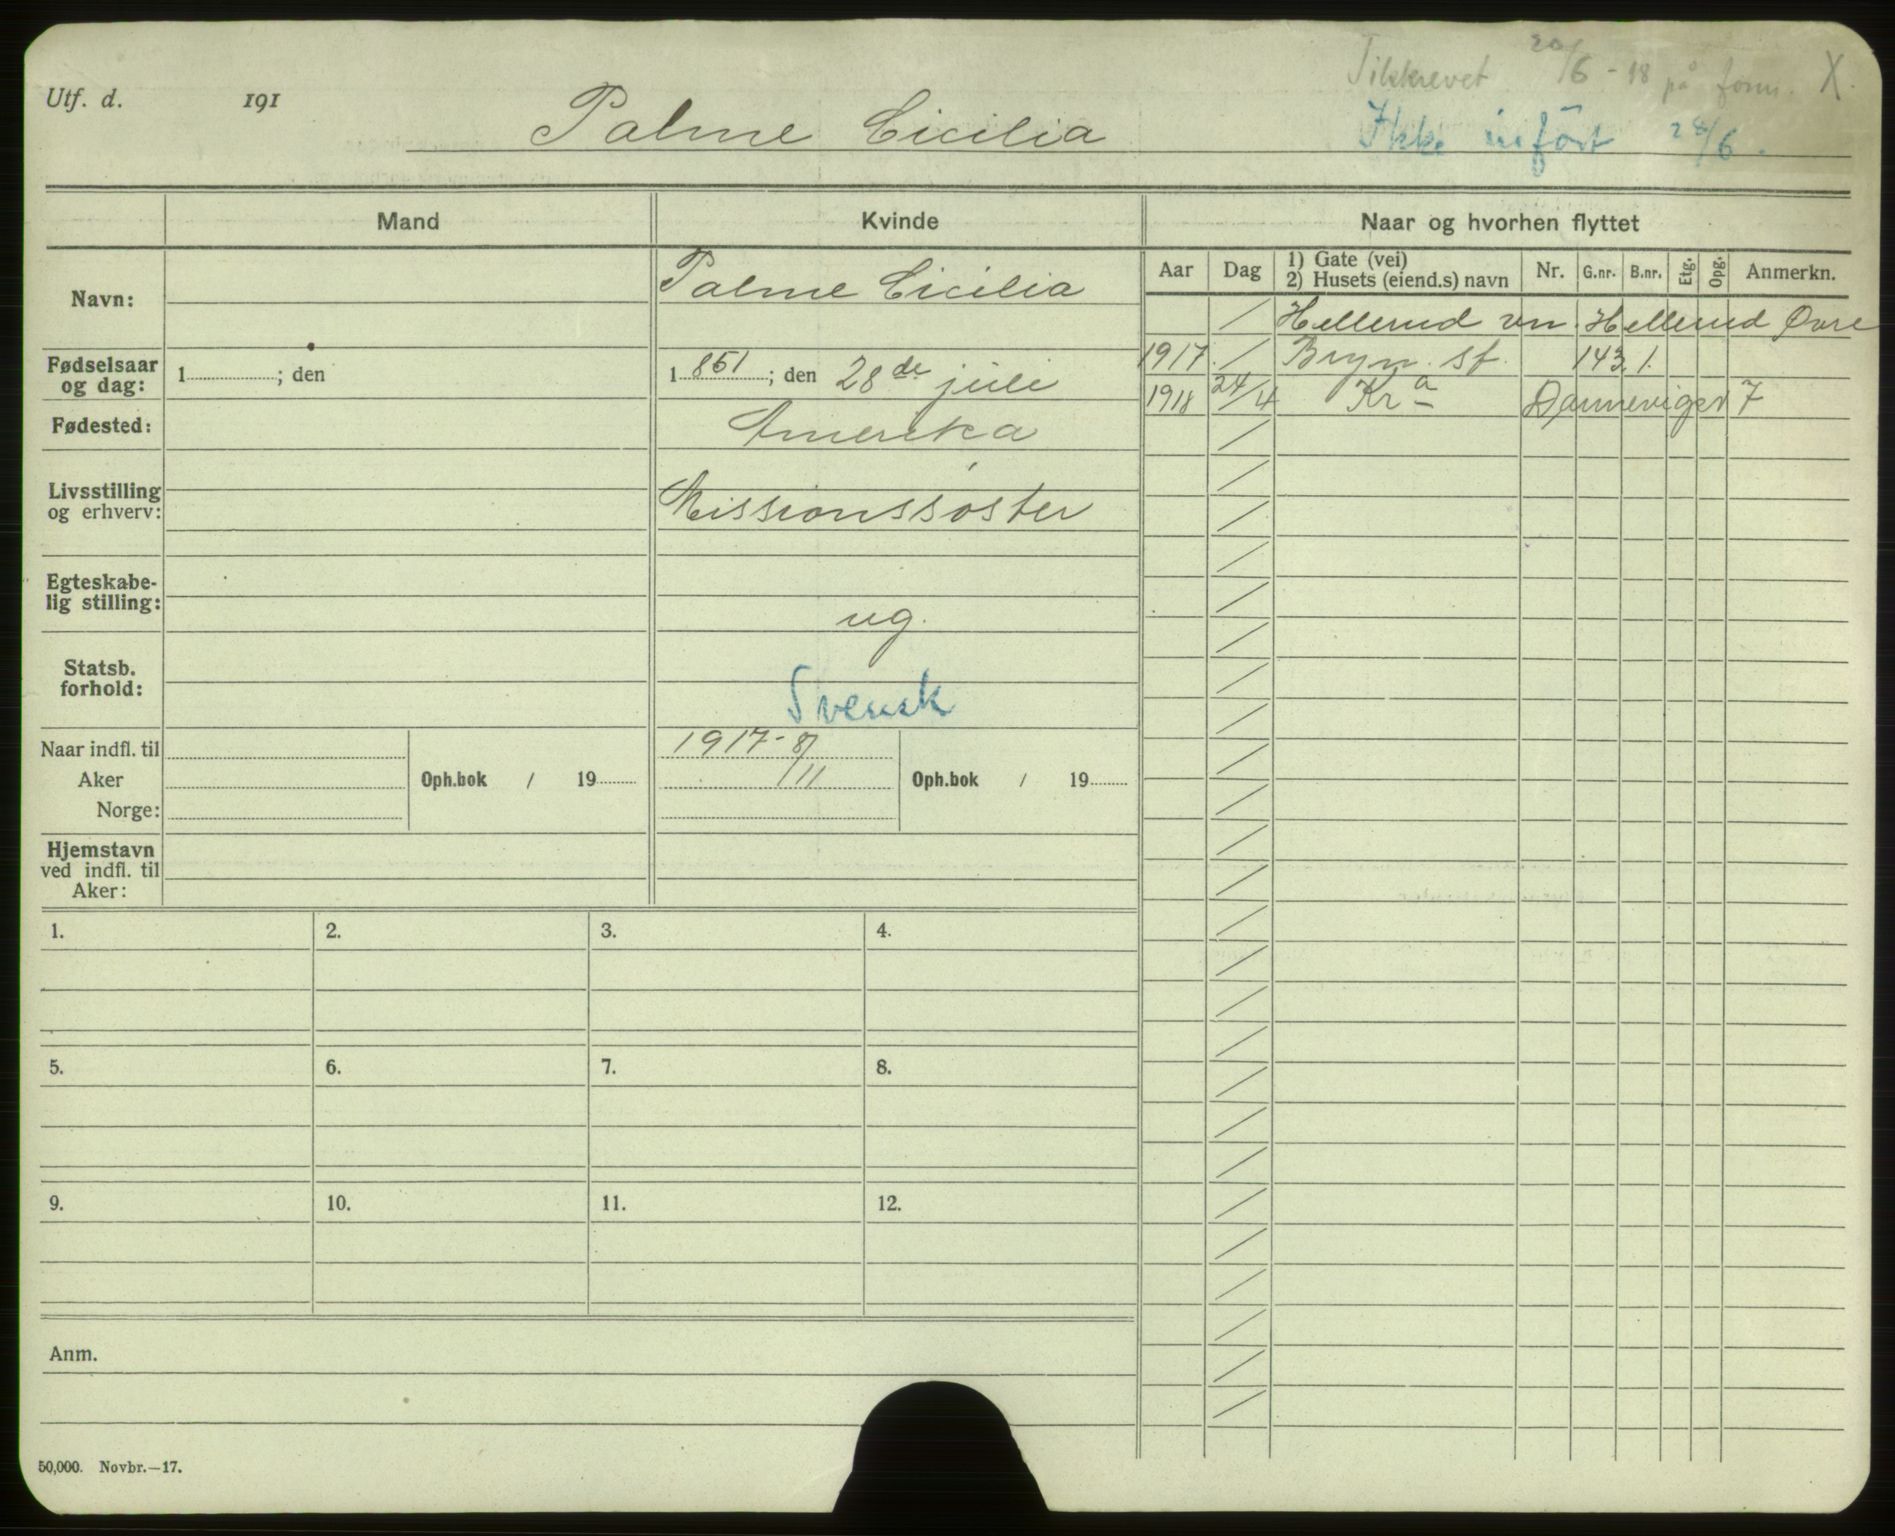 Tilskrevet 20/6 - 18 på form. X.
Utf. d. 191
Palme Cicilia
Ikke infört 28/6.
Mand
Kvinde
Naar og hvorhen flyttet
Navn:
Palme Cicilia
Fødselsaar og dag:
1 ; den
1 851 ; den 28de juli
Fødested:
Amerika
Livsstilling og erhverv:
Missionssøster
Egteskabe-
lig stilling:
ug.
Statsb. forhold:
Svensk
Naar indfl. til
Aker
Norge:
Oph.bok / 19
1917 - 8/11
Oph.bok / 19
Hjemstavn
ved indfl. til
Aker:
Aar Dag 1) Gate (vei) 2) Husets (eiend.s) navn Nr. G.nr. B.nr. Etg. Opg. Anmerkn.
/ Hellerud vn. Hellerud Øvre
1917. / Bryn. st. 143. 1.
1918 24/4 Kra Dannevigsv 7
1. 2. 3. 4.
5. 6. 7. 8.
9. 10. 11. 12.
Anm.
50,000. Novbr.—17.